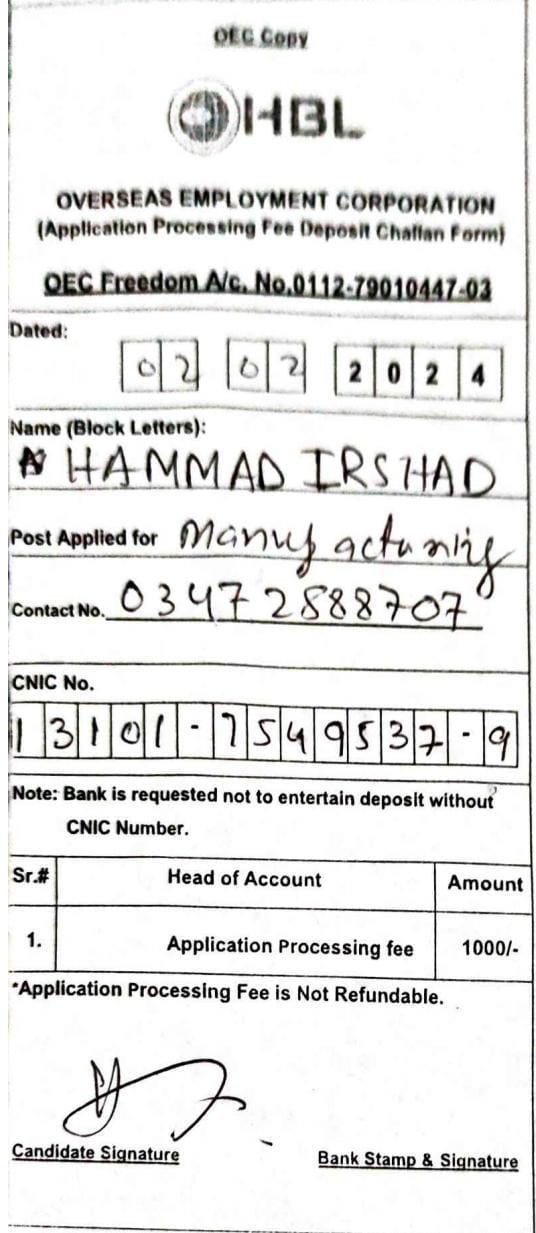 OEC Copy
HBL
OVERSEAS EMPLOYMENT CORPORATION
(Application Processing Fee Deposit Challan Form)
OEC Freedom A/c. No.0112-79010447-03
Dated:
02 02 2024
Name (Block Letters):
HAMMAD IRSHAD
Post Applied for Manufacturing
Contact No. 03472588707
CNIC No.
13101-7549537-9
Note: Bank is requested not to entertain deposit without
CNIC Number.
Sr.# Head of Account Amount
1. Application Processing fee 1000/-
*Application Processing Fee is Not Refundable.
Candidate Signature Bank Stamp & Signature